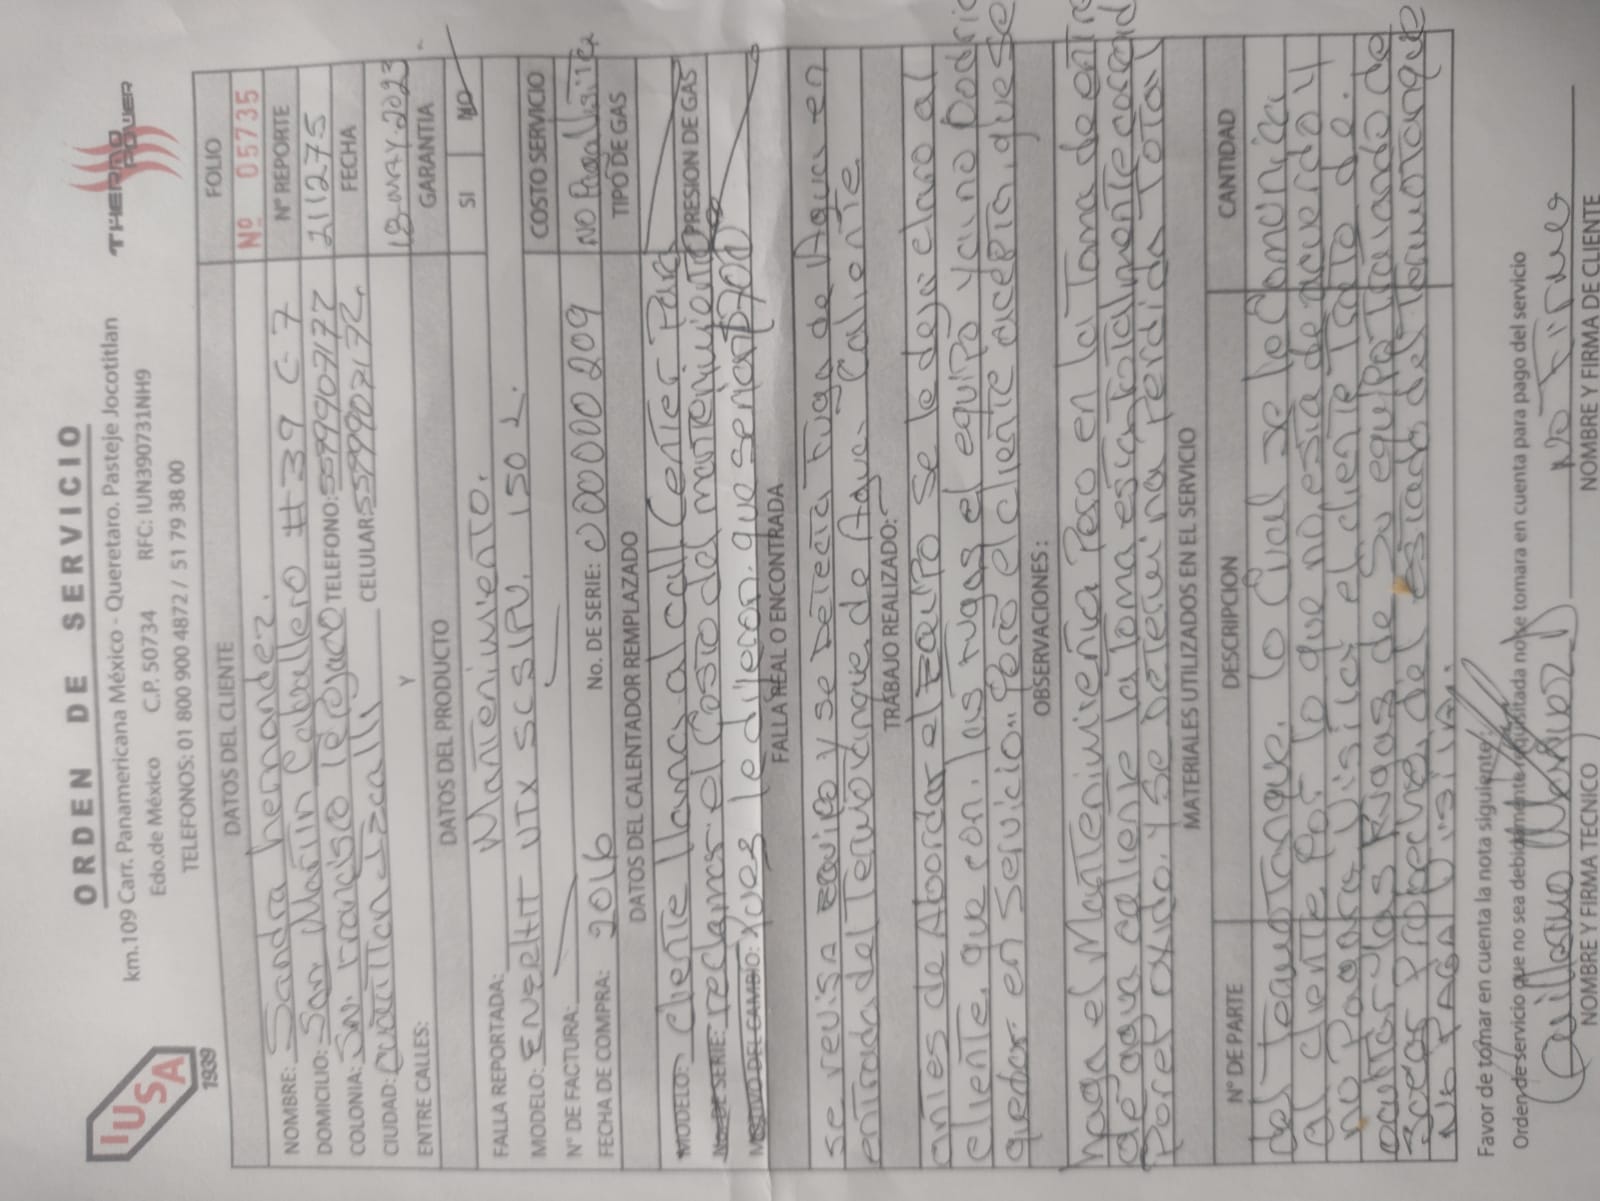 IUSA
1939
ORDEN DE SERVICIO
km.109 Carr. Panamericana México - Queretaro. Pasteje Jocotitlan
Edo.de México C.P. 50734 RFC: IUN390731NH9
TELEFONOS: 01 800 900 4872 / 51 79 38 00
THERMO POWER
DATOS DEL CLIENTE
FOLIO
Nº 05735
NOMBRE: Sandra hernandez.
Nº REPORTE
DOMICILIO: San Martin Caballero #39 C-7
211275
COLONIA: Sn. francisco Tepojaco TELEFONO: 5599907177
FECHA
CIUDAD: Cuatitlan Izcalli CELULAR: 5599907172.
18-MAY-2023
ENTRE CALLES: Y
GARANTIA
DATOS DEL PRODUCTO
SI NO
FALLA REPORTADA: Mantenimiento.
MODELO: ENERTH VTX SCS1PV. 150 L.
COSTO SERVICIO
N° DE FACTURA:
No Paga Visita
FECHA DE COMPRA: 2016 No. DE SERIE: 000000209
TIPO DE GAS
DATOS DEL CALENTADOR REMPLAZADO
MODELO: cliente llama al call center Para
PRESION DE GAS
No DE SERIE: reclamar el Costo del mantenimiento
MOTIVO DEL CAMBIO: Pues le dijeron que serian $700
FALLA REAL O ENCONTRADA
se revisa equipo y se Detecta fuga de Agua en
entrada del Termotanque, de Agua Caliente
TRABAJO REALIZADO:
antes de Abordar el Equipo se le deja claro al
cliente, que con las fugas el equipo ya no Podria
quedar en Servicio.. Pero el cliente acepta, que se
OBSERVACIONES:
haga el Mantenimiento Pero en la Toma de entra
de agua caliente la Toma esta totalmente corroid
Por el oxido. y se Determina Perdida Total
MATERIALES UTILIZADOS EN EL SERVICIO
N° DE PARTE DESCRIPCION CANTIDAD
del Termo Tanque. lo Cual se le Comunica
al cliente Por lo que no esta de acuerdo y
no Pagara Visita el cliente Trato de.
ocultar las fugas de Su equipo Tratando de
Sacar Provecho, del estado del termotanque
No PAGA Visita.
Favor de tomar en cuenta la nota siguiente:
Orden de servicio que no sea debidamente requisitada no se tomara en cuenta para pago del servicio
No Firmo
NOMBRE Y FIRMA TECNICO
NOMBRE Y FIRMA DE CLIENTE